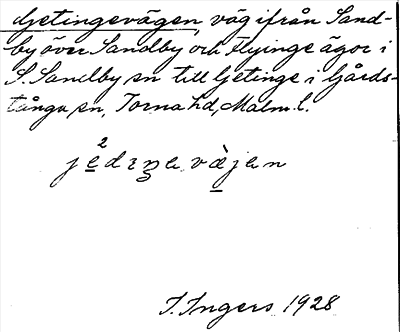 Getingevägen, väg ifrån Sand-
by över Sandby och Flyinge ägor i
S. Sandby sn till Getinge i Gårds-
tånga sn, Torna hd, Malm. l.
I. Ingers 1928